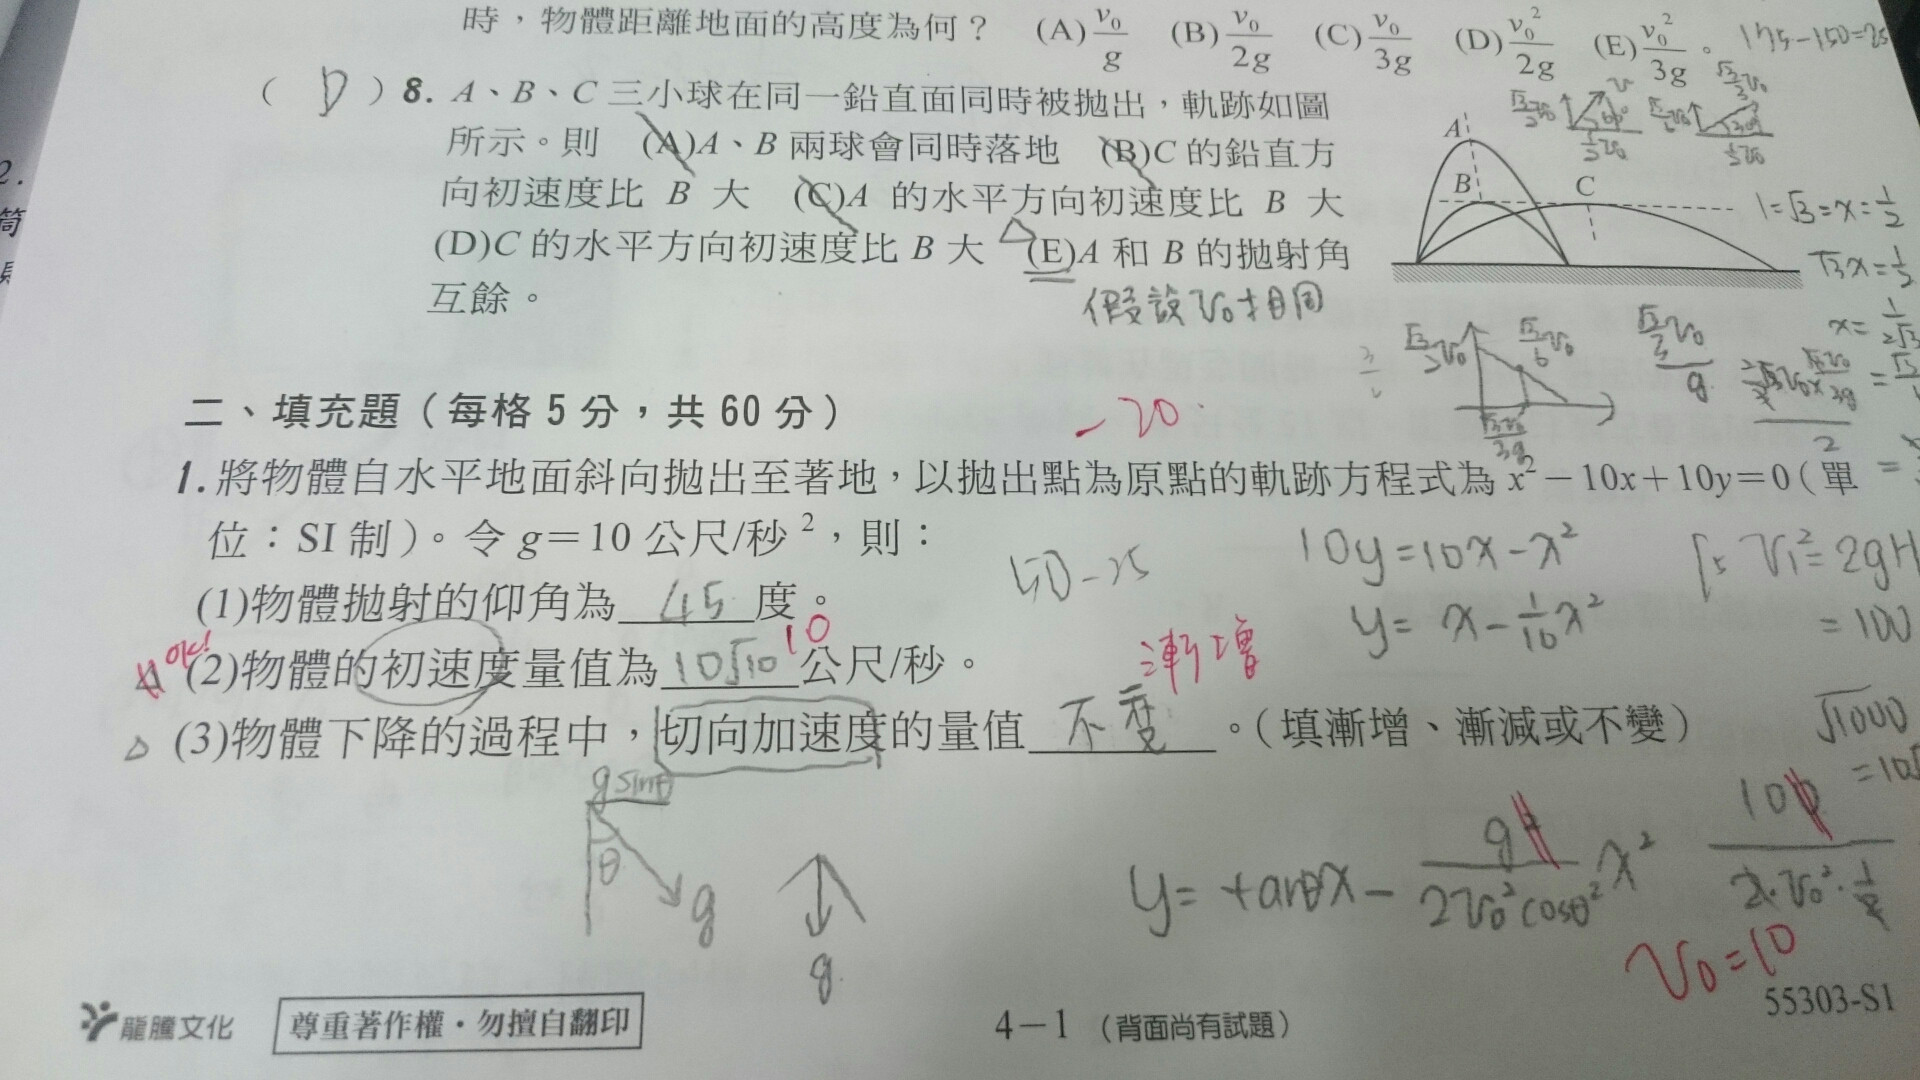 時，物體距離地面的高度為何？ (A) v₀/g (B) v₀/2g (C) v₀/3g (D) v₀²/2g (E) v₀²/3g 。
175-150=25
( D ) 8. A、B、C 三小球在同一鉛直面同時被拋出，軌跡如圖
所示。則 (A)A、B 兩球會同時落地 (B)C 的鉛直方
向初速度比 B 大 (C)A 的水平方向初速度比 B 大
(D)C 的水平方向初速度比 B 大 (E)A 和 B 的拋射角
互餘。
假設 v₀ 相同
A
B
C
1=√3=x=1/2
√3x=1/2
二、填充題（每格 5 分，共 60 分）
-20
1. 將物體自水平地面斜向拋出至著地，以拋出點為原點的軌跡方程式為 x²－10x＋10y＝0（單
位：SI 制）。令 g＝10 公尺/秒²，則：
50-25
10y=10x-x²
v₁²=2gH
(1)物體拋射的仰角為 45 度。
y= x-1/10x²
=100
OK!
(2)物體的初速度量值為 10√10 公尺/秒。
10
漸增
(3)物體下降的過程中，切向加速度的量值 不變 。（填漸增、漸減或不變）
√1000
g sinθ
θ
g
g
y= tanθx- g/2v₀²cosθ² x²
100/2·v₀²·1/2
v₀=10
龍騰文化
尊重著作權・勿擅自翻印
4－1 （背面尚有試題）
55303-S1